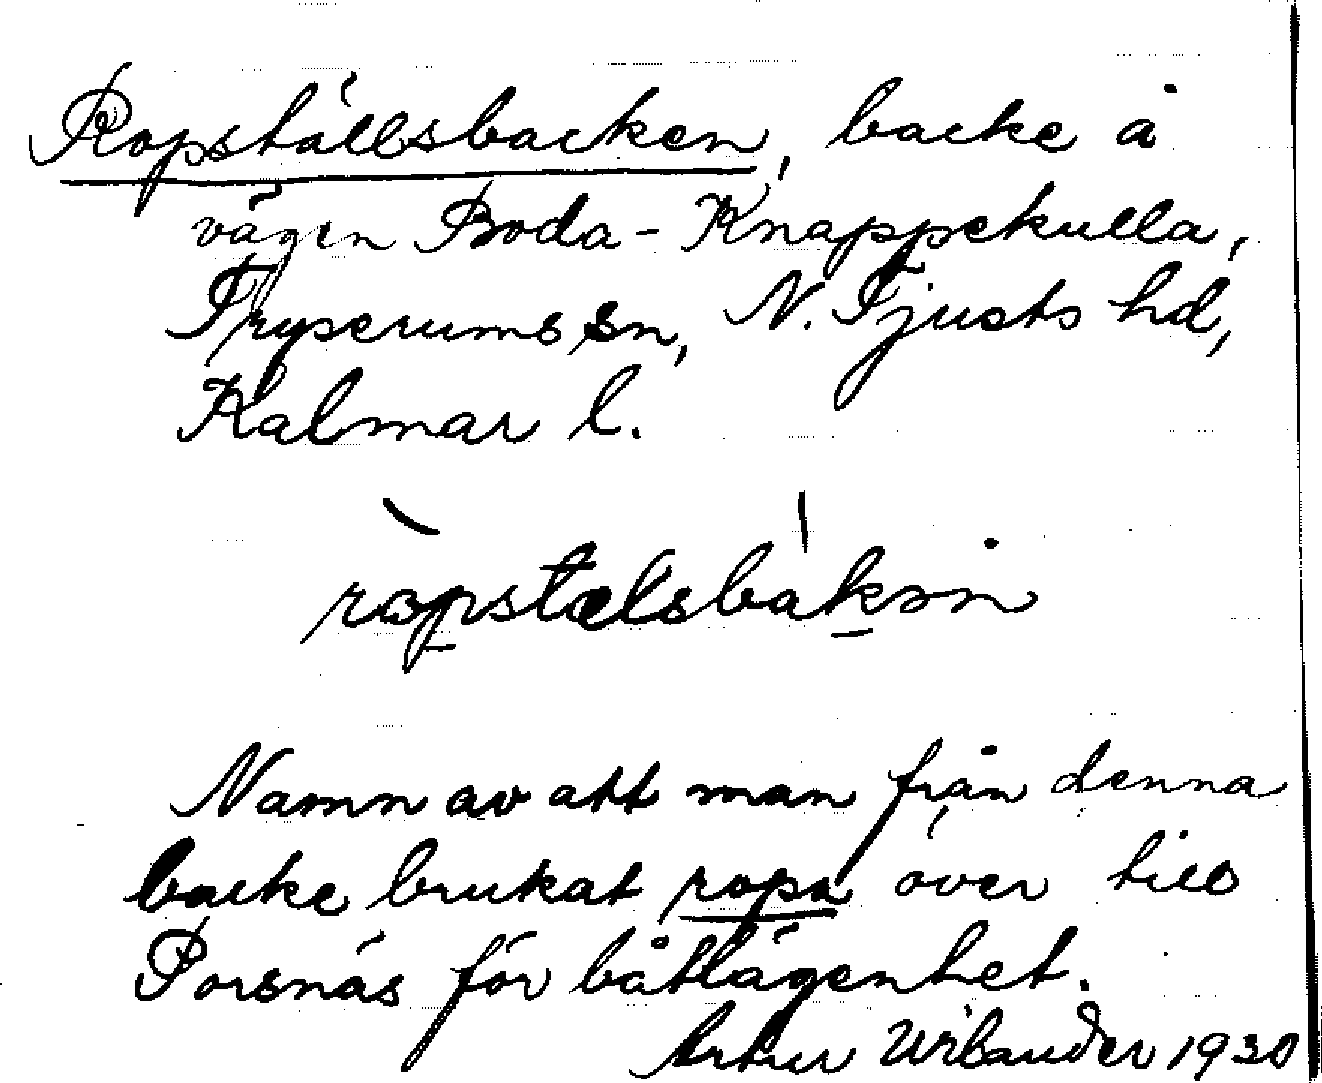 Ropställsbacken, backe å
vägen Boda - Knappekulla,
Tryserums sn, N. Tjusts hd,
Kalmar l.
Namn av att man från denna
backe brukat ropa över till
Porsnäs för båtlägenhet.
Artur Örlander 1930